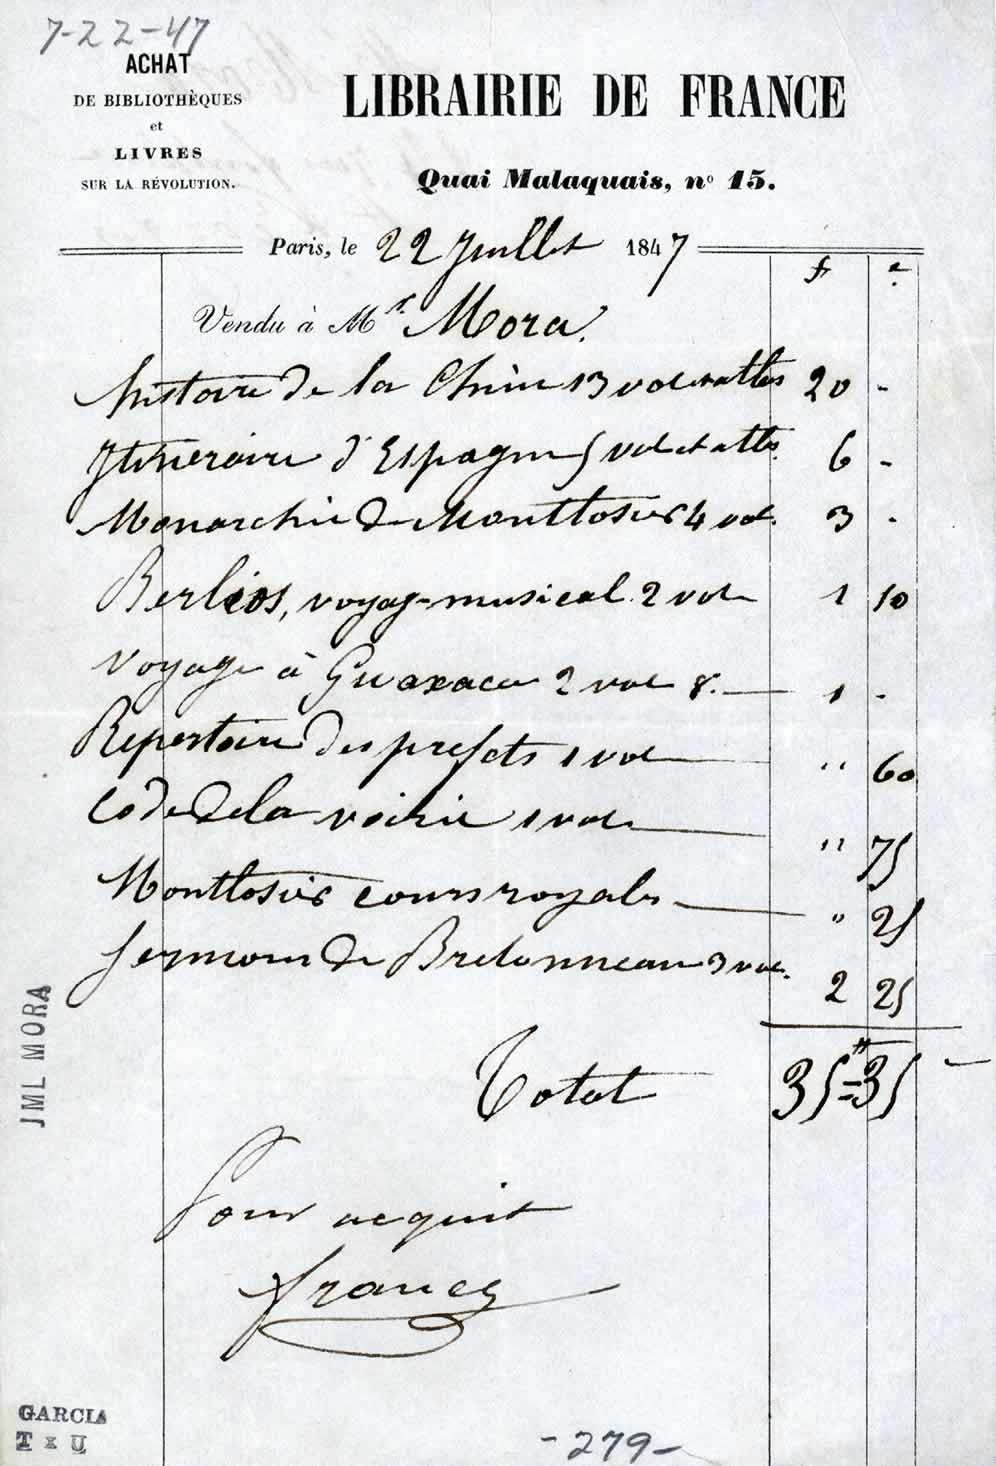 7-22-47
ACHAT
DE BIBLIOTHÈQUES
et
LIVRES
SUR LA RÉVOLUTION.
LIBRAIRIE DE FRANCE
Quai Malaquais, n° 15.
Paris, le 22 Juillet 1847
f c
Vendu à Mr. Mora.
histoire de la Chine 13 vol et atlas 20 -
Itineraire d'Espagne 5 vol et atlas 6 -
Monarchie de Montlosier 4 vol. 3 -
Berlios, voyage musical 2 vol 1 10
Voyage à Guaxaca 2 vol 8. 1 -
Repertoire des prefets 1 vol " 60
Code de la voirie 1 vol " 75
Montlosier cours royales " 25
Sermons de Bretonneau 3 vol. 2 25
Total 35 = 35
Pour acquit
france
JML MORA
GARCIA
T x U
-279-